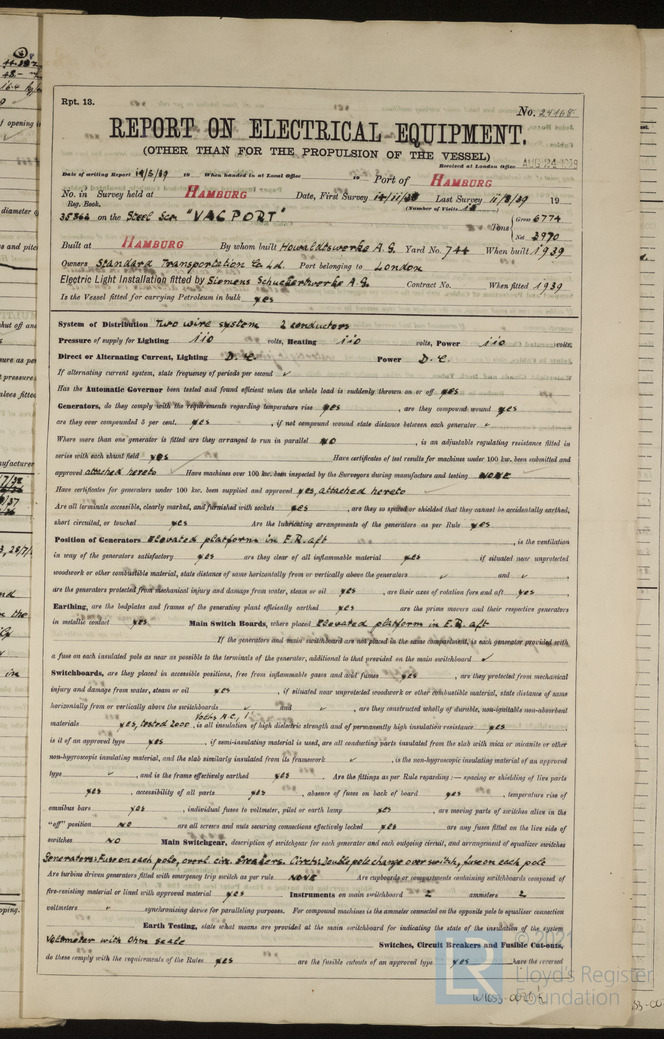 Rpt. 13.
No. 24168
REPORT ON ELECTRICAL EQUIPMENT.
(OTHER THAN FOR THE PROPULSION OF THE VESSEL)
Received at London Office AUG 24 1939
Date of writing Report 19 When handed in at Local Office 19 Port of HAMBURG
No. in Survey held at HAMBURG Date, First Survey Last Survey 19
Reg. Book. (Number of Visits
on the Steel Scr "VACPORT" Tons { Gross 6774
Net 3970
Built at HAMBURG By whom built Howaldtswerke A.G. Yard No. 744 When built 1939
Owners Standard Transportation Co Ld. Port belonging to London
Electric Light Installation fitted by Siemens Schuckertwerke A.G. Contract No. When fitted 1939
Is the Vessel fitted for carrying Petroleum in bulk yes
System of Distribution Two wire system 2 conductors
Pressure of supply for Lighting 110 volts, Heating 110 volts, Power 110 volts.
Direct or Alternating Current, Lighting D.C. Power D.C.
If alternating current system, state frequency of periods per second ✓
Has the Automatic Governor been tested and found efficient when the whole load is suddenly thrown on or off yes
Generators, do they comply with the requirements regarding temperature rise yes, are they compound wound yes
are they over compounded 5 per cent. yes, if not compound wound state distance between each generator ✓
Where more than one generator is fitted are they arranged to run in parallel no, is an adjustable regulating resistance fitted in
series with each shunt field yes Have certificates of test results for machines under 100 kw. been submitted and
approved attached hereto Have machines over 100 kw. been inspected by the Surveyors during manufacture and testing NONE
Have certificates for generators under 100 kw. been supplied and approved yes, attached hereto
Are all terminals accessible, clearly marked, and furnished with sockets yes, are they so spaced or shielded that they cannot be accidentally earthed,
short circuited, or touched yes Are the lubricating arrangements of the generators as per Rule yes
Position of Generators Elevated platform in E.R. aft, is the ventilation
in way of the generators satisfactory yes are they clear of all inflammable material yes if situated near unprotected
woodwork or other combustible material, state distance of same horizontally from or vertically above the generators ✓ and ✓,
are the generators protected from mechanical injury and damage from water, steam or oil yes, are their axes of rotation fore and aft yes
Earthing, are the bedplates and frames of the generating plant efficiently earthed yes are the prime movers and their respective generators
in metallic contact yes Main Switch Boards, where placed Elevated platform in E.R. aft
If the generators and main switchboard are not placed in the same compartment, is each generator provided with
a fuse on each insulated pole as near as possible to the terminals of the generator, additional to that provided on the main switchboard ✓
Switchboards, are they placed in accessible positions, free from inflammable gases and acid fumes yes, are they protected from mechanical
injury and damage from water, steam or oil yes, if situated near unprotected woodwork or other combustible material, state distance of same
horizontally from or vertically above the switchboards ✓ and ✓, are they constructed wholly of durable, non-ignitable non-absorbent
materials yes, tested 2000 volts, A.C., is all insulation of high dielectric strength and of permanently high insulation resistance yes
is it of an approved type yes, if semi-insulating material is used, are all conducting parts insulated from the slab with mica or micanite or other
non-hygroscopic insulating material, and the slab similarly insulated from its framework ✓, is the non-hygroscopic insulating material of an approved
type ✓, and is the frame effectively earthed yes Are the fittings as per Rule regarding :— spacing or shielding of live parts
yes, accessibility of all parts yes, absence of fuses on back of board yes, temperature rise of
omnibus bars yes, individual fuses to voltmeter, pilot or earth lamp yes, are moving parts of switches alive in the
"off" position NO are all screws and nuts securing connections effectively locked yes are any fuses fitted on the live side of
switches NO Main Switchgear, description of switchgear for each generator and each outgoing circuit, and arrangement of equalizer switches
Generators: Fuse on each pole, overl. circ. Breakers. Circts: Double pole change over switch, fuse on each pole
Are turbine driven generators fitted with emergency trip switch as per rule NONE Are cupboards or compartments containing switchboards composed of
fire-resisting material or lined with approved material yes Instruments on main switchboard 2 ammeters 2
voltmeters ✓ synchronising device for paralleling purposes. For compound machines is the ammeter connected on the opposite pole to equaliser connection
Earth Testing, state what means are provided at the main switchboard for indicating the state of the insulation of the system
Voltmeter with Ohm Scale Switches, Circuit Breakers and Fusible Cut-outs,
do these comply with the requirements of the Rules yes are the fusible cutouts of an approved type yes have the reversed
© 2021
LR
Lloyd's Register
Foundation